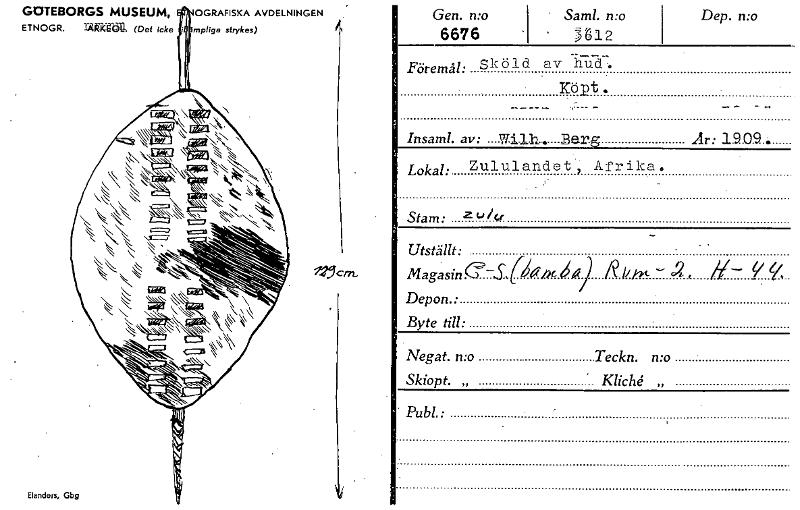 GÖTEBORGS MUSEUM, ETNOGRAFISKA AVDELNINGEN
ETNOGR. ARKEOL. (Det icke tillämpliga strykes)
129cm
Elanders, Gbg
Gen. n:o Saml. n:o Dep. n:o
6676 3612
Föremål: Sköld av hud.
Köpt.
Insaml. av: Wilh. Berg År: 1909.
Lokal: Zululandet, Afrika.
Stam: zulu
Utställt:
Magasin G-S (bamba) Rum-2. H-44.
Depon.:
Byte till:
Negat. n:o Teckn. n:o
Skiopt. „ Kliché „
Publ.: